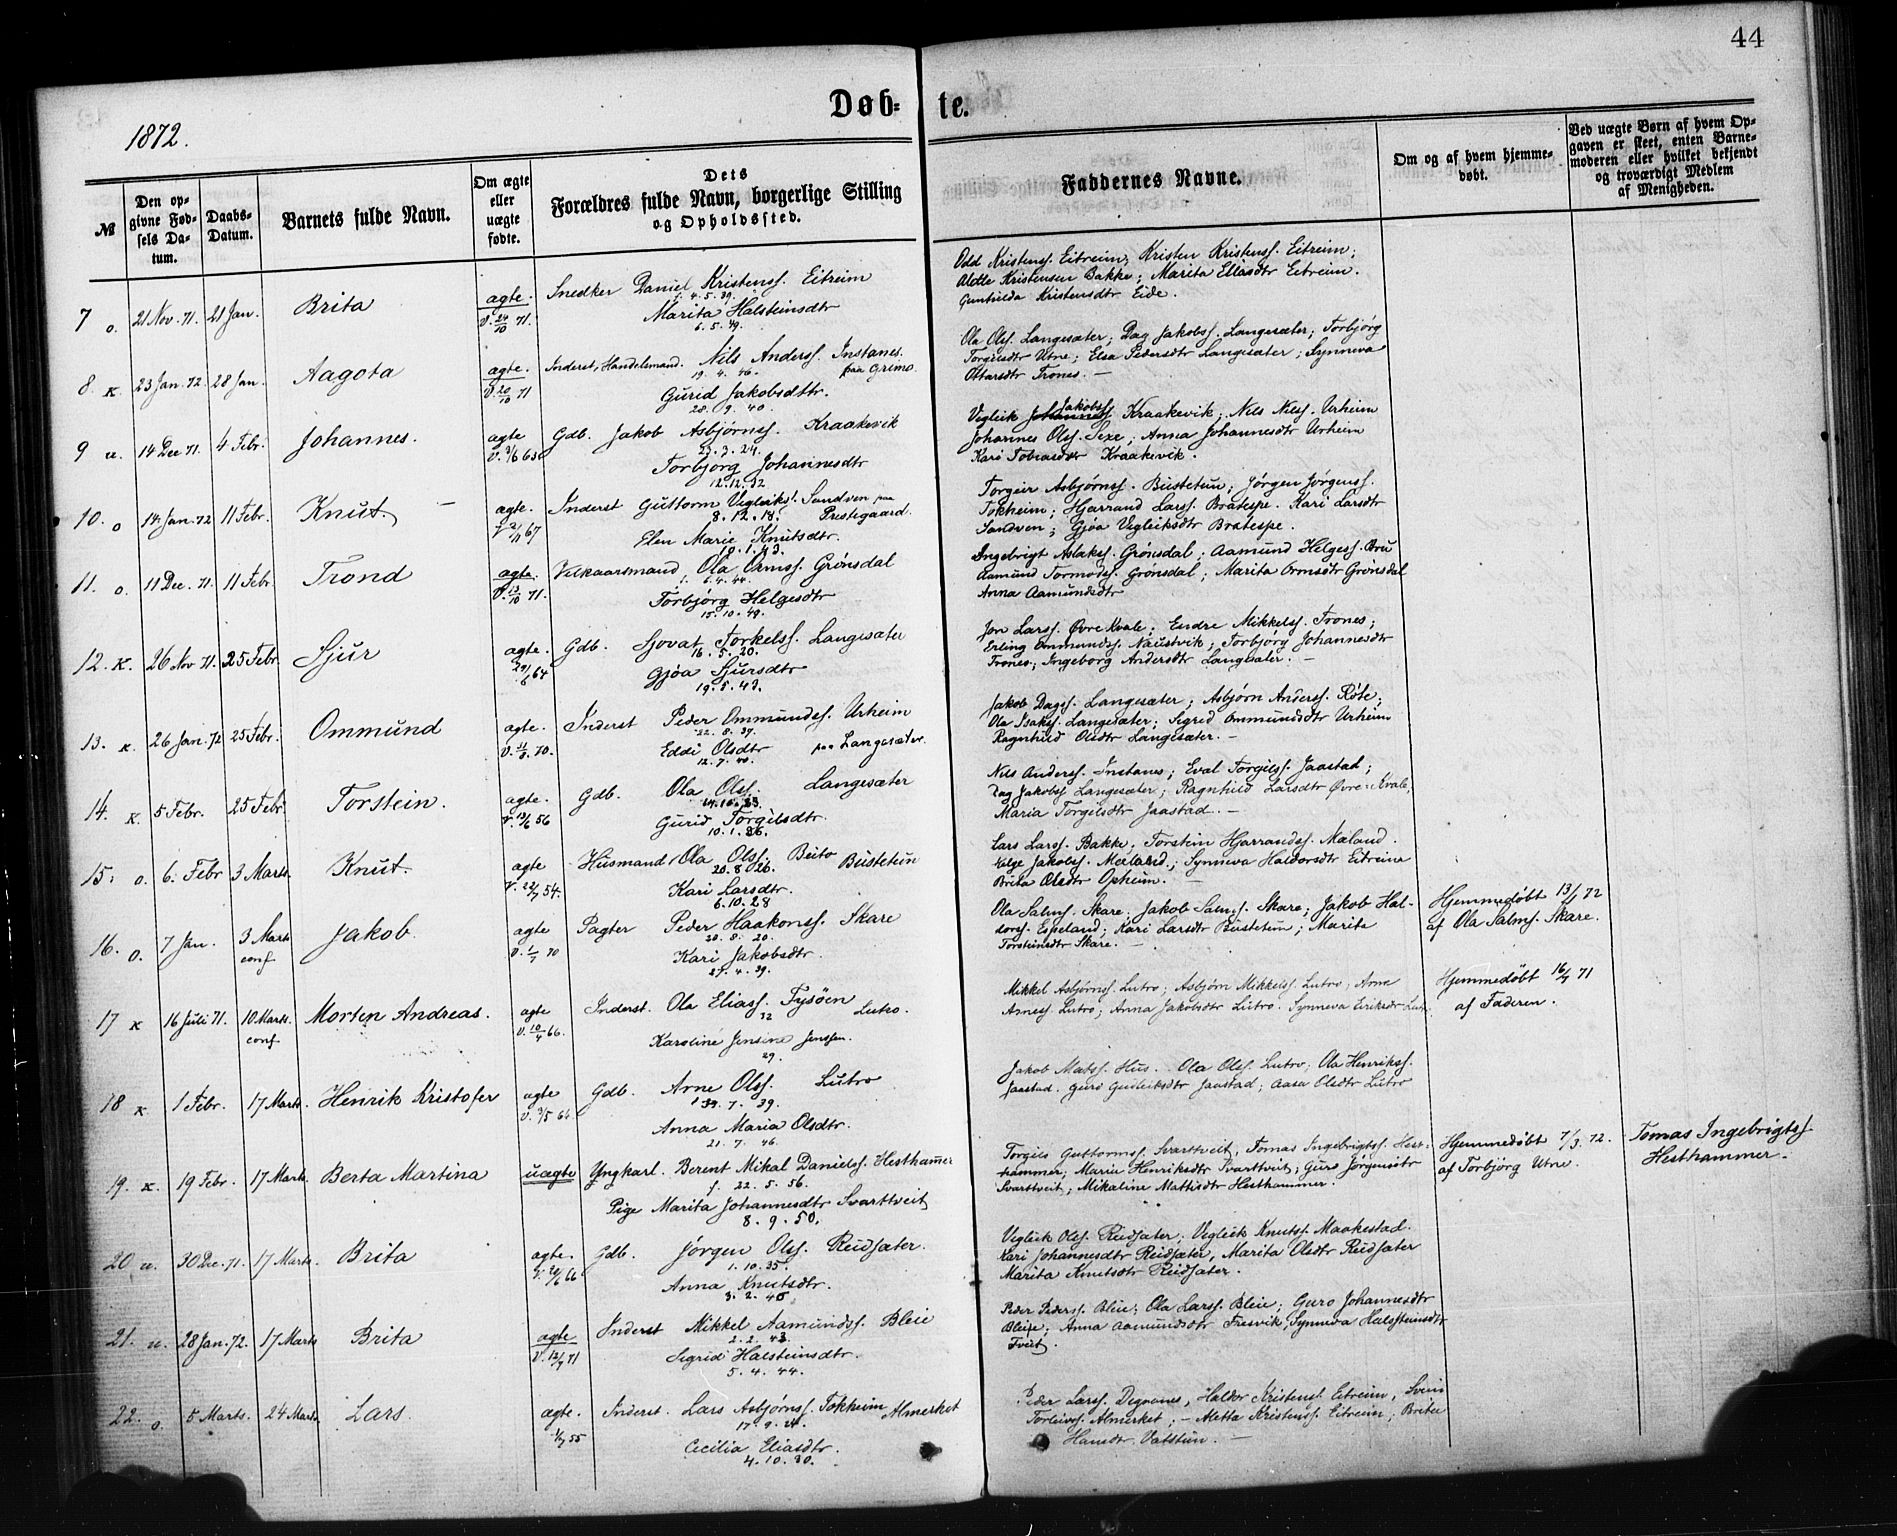 44
Døb-
te.
1872.
№
Den op-
givne Fød-
sels Da-
tum.
Daabs-
Datum.
Barnets fulde Navn.
Om ægte
eller
uægte
fødte.
Dets
Forældres fulde Navn, borgerlige Stilling
og Opholdssted.
Faddernes Navne.
Om og af hvem hjemme-
døbt.
Ved uægte Børn af hvem Op-
gaven er skeet, enten Barne-
moderen eller hvilket bekjendt
og troværdigt Medlem
af Menigheden.
7 o. 21 Nov. 71. 21 Jan. Brita ægte. Snedker Daniel Kristenss. Eitreim
f. 4.5.39.
V. 24/10 71. Marita Halsteinsdtr
6.5.49.
Odd Kristenss. Eitreim; Kristen Kristenss. Eitreim;
Kristensen Bakke; Marita Ellasdtr Eitreim.
Gunhilda Kristensdtr Eide.
8. K. 23 Jan. 72. 28 Jan. Aagota ægte. Inderst, Handelsmand. Nils Anderss. Instanes.
19.4.46. paa Grimo
V. 20/10 71 Gurid Jakobsdttr.
28.9.40.
Ola Olss. Langesæter; Dag Jakobss. Langesæter; Torbjørg
Torgilsdtr Utne; Elsa Pedersdtr Langesæter; Synneva
Ottarsdtr Trones. —
9 u. 14 Dec 71. 4 Febr. Johannes. ægte Gdb. Jakob Asbjørnss. Kraakevik
23.3.24.
Torbjørg Johannesdtr
12.12.32
Vigleik Jakobss. Kraakevik; Nils Nilss. Urheim
Johannes Olss. Sexe; Anna Johannesdtr Urheim
Kari Tobiasdtr Kraakevik.
10. o 14. Jan. 72 11 Febr. Knut. — ægte. Inderst Guttorm Vigleikss. Sandven paa
8.12.18. Prestegaard.
Elen Marie Knutsdtr.
10.1.43.
Torgeir Asbjørnss. Bustetun; Jørgen Jørgenss.
Tokheim; Hjarrand Larss. Bratespe. Kari Larsdtr
Sandven; Gjøa Vigleiksdtr Bratespe.
11. o. 11 Dec. 71. 11 Febr. Trond ægte. Vilkaarsmand Ola Ormss. Grønsdal
6.4.44.
V. 13/10 71. Torbjørg Helgesdtr
15.10.49.
Ingebrigt Aslakss. Grønsdal; Aamund Helgess. Bru
Aamund Tormodss. Grønsdal; Marita Ormsdtr Grønsdal
Anna Aamundsdtr
12. K. 26 Nov 71. 25 Febr. Sjur ægte. Gdb. Sjovat Torkelss. Langesæter
16.5.20.
29/6 64 Gjøa Sjursdtr
19.5.43.
Jon Larss. Øvre Kvale; Endre Mikkelss. Trones;
Erling Ommundss. Naustvik; Torbjørg Johannesdtr
Trones; Ingeborg Andersdtr Langesæter. —
13. K. 26 Jan. 72 25 Febr. Ommund ægte. Inderst Peder Ommundss. Urheim
22.8.39.
Eddi Olsdtr paa Langesæter.
12.7.40.
Jakob Dagss. Langesæter; Asbjørn Anderss. Røte;
Ola Isakss. Langesæter; Sigrid Ommundsdtr Urheim
Ragnhild Olsdtr Langesæter. —
14. K. 5 Febr. 25 Febr. Torstein. ægte. Gdb. Ola Olss. Langesæter
V. 13/6 56 Gurid Torgilsdtr.
Nils Anderss. Instanes; Torgilss. Jaastad;
Dag Jakobss Langesæter; Ragnhild Larsdtr Øvre-Kvale;
Maria Torgilsdtr Jaastad. —
15. o. 6. Febr 3 Marts. Knut. ægte Husmand Ola Olss. Beito Bustetun
20.8.26.
Kari Larsdtr.
6.10.28
Lars Larss. Bakke, Torstein Hjarrandss. Mæland.
Helge Jakobss. Mæland; Synneva Haldorsdtr Eitreim
Brita Olsdtr Opheim. —
16. o. 7 Jan. 3 Marts conf Jakob. ægte Pagter Peder Haakonss. Skare
20.8.20.
V. 1/7 70 Kari Jakobsdtr.
Ola Salms. Skare; Jakob Salms. Skare; Jakob Hal-
dorss. Espeland; Kari Larsdtr Bustetun; Marita
Torsteinsdtr Skare. —
Hjemmedøbt 13/1 72
af Ola Salms. Skare.
17 K 16 Juli 71. 10. Marts. conf Morten Andreas. ægte Inderst. Ola Eliass. Tysöen Lutro.
32
V. 10/4 66. Karoline Jensine Jenssen.
29.
Mikkel Asbjørnss. Lutro; Asbjørn Mikkelss. Lutro, Arne
Arness. Lutro; Anna Jakobsdtr Lutro. Synneva Eriksdtr
Hjemmedøbt 71
af Faderen.
18 K 1 Febr. 17 Marts. Henrik Kristofer ægte Gdb. Arne Olss. Lutro
Anna Maria Olsdtr.
21.7.46.
Jakob Matss. Hus. Ola Olss. Lutro; Ola Henrikss.
Jaastad. Guro Gunleiksdtr Jaastad; Aasa Olsdtr Lutro
19. K. 19 Febr. 17 Marts. Berta Martina uægte Yngkarl. Berent Mikal Danielss. Hesthammer
f. 22.5.56.
Pige Marita Johannesdtr Svarttveit
8.9.50.
Torgils Guttormss. Svarttveit, Tomas Ingebrigtss. Hest-
hammer; Maria Henriksdtr Svarttveit; Guro Jørgensdtr
Svarttveit; Mikaline Mattisdtr Hesthammer.
Hjemmedøbt 7/3. 72.
af Torbjørg Utne.
Tomas Ingebrigtss
Hesthammer.
20 u. 30 Dec. 71. 17 Marts. Brita ægte. Gdb. Jørgen Olss. Reidsæter.
1.10.35.
Anna Knutsdtr.
Vigleik Olss. Reidsæter; Vigleik Knutss. Maakestad.
Kari Johannesdtr Reidsæter, Marita Olsdtr Reidsæter
Marita Knutsdtr Reidsæter.
21. u. 28 Jan. 72. 17 Marts Brita ægte Inderst Mikkel Aamundss. Bleie
2.2.43.
Sigrid Halsteinsdtr.
5.4.44.
Peder Pederss. Bleie; Ola Larss. Bleie; Guro Johannesdtr
Bleie; Anna Aamundsdtr Fresvik; Synneva Halsteinsdtr
Tveit.
22. o. 5 Marts. 24 Marts Lars. ægte. Inderst. Lars Asbjørnss. Tokheim Almerket
Cecilia Eliasdtr.
4.10.30.
Peder Larss. Degranes, Haldor Kristenss. Eitreim, Svein
Torleivss. Almerket; — Aletta Kristenss. Eitreim; Brita
Hansdtr. Vatstun. —